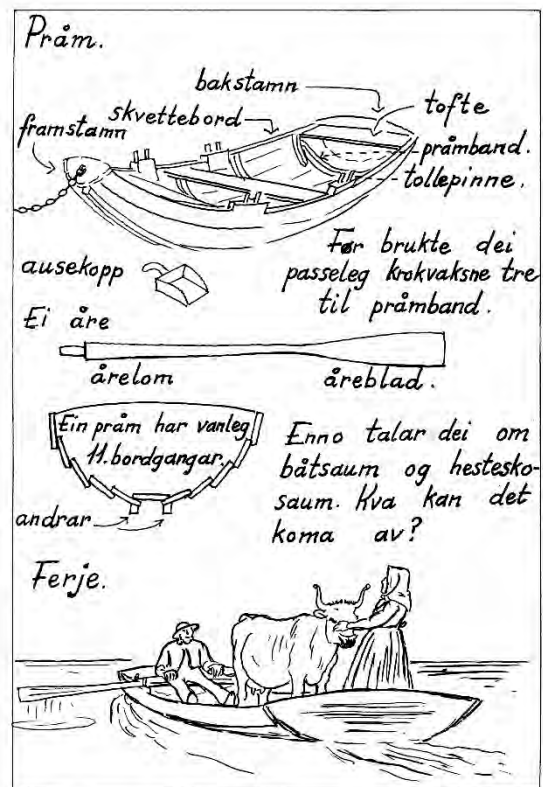 Pråm.
bakstamn
tofte
skvettebord
framstamn
pråmband.
tollepinne.
Før brukte dei
passeleg krokvaksne tre
til pråmband.
ausekopp
Ei åre
årelom
åreblad.
Ein pråm har vanleg
11.bordgangar.
Enno talar dei om
båtsaum og hestesko-
saum. Kva kan det
koma av?
andrar
Ferje.